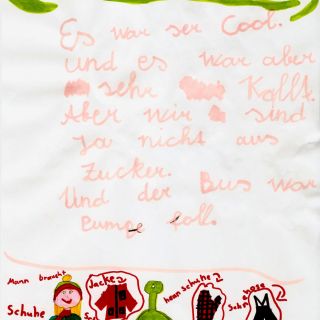 Es war ser Cool.
und es war aber
sehr Kallt.
Aber wir sind
ja nicht aus
Zucker.
Und der Bus war
rumge foll.
Mann braucht
Schuhe
Jacke
hann schuhe
Schneehose